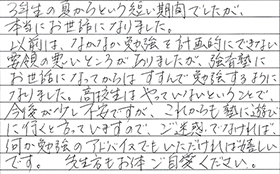 3年生の夏からという短い期間でしたが、
本当にお世話になりました。
以前は、なかなか勉強を計画的にできない
要領の悪いところがありましたが、強者塾に
お世話になってからはすすんで勉強するように
なりました。高校生はやっていないということで、
今後が少し不安ですが、これからも塾に遊び
に行くと言っていますので、ご迷惑でなければ、
何か勉強のアドバイスでもいただければ嬉しい
です。 先生方もお体ご自愛ください。